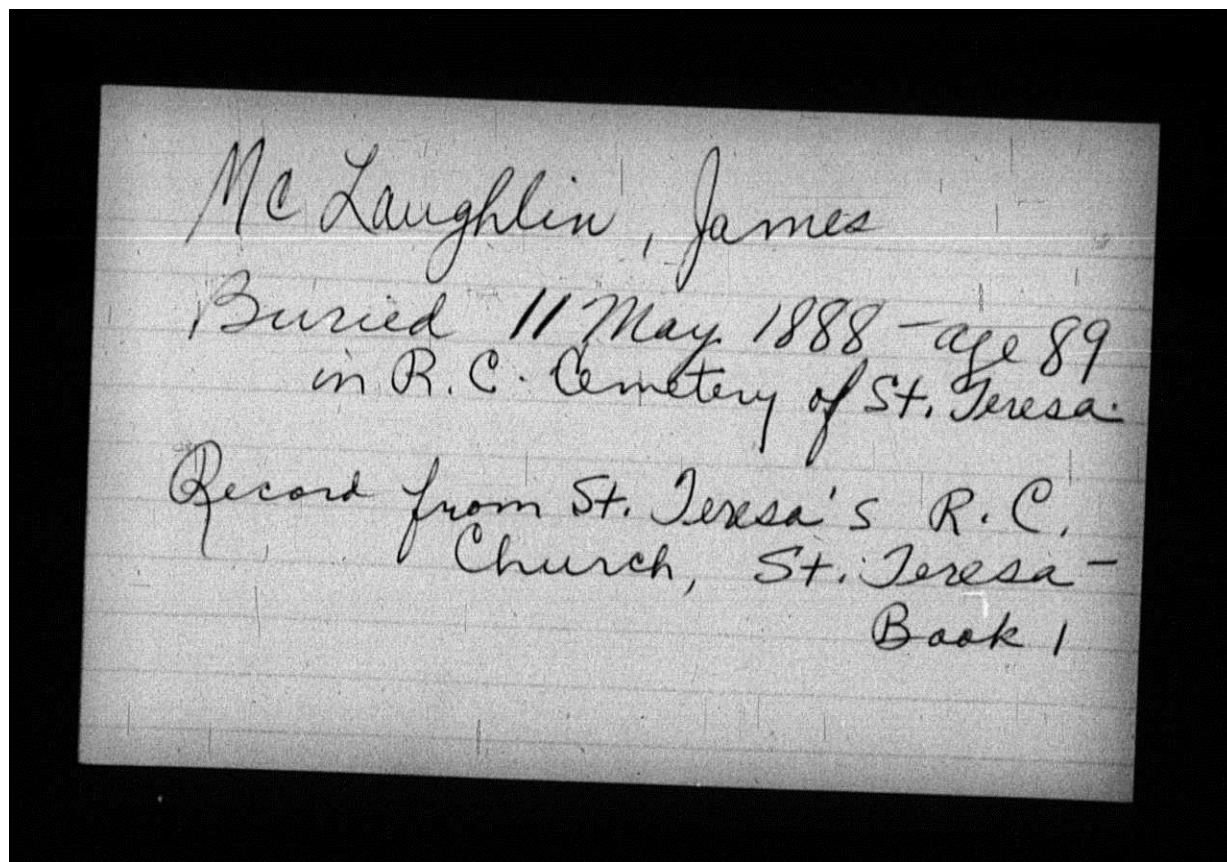 Mc Laughlin, James
Buried 11 May 1888 - age 89
in R.C. Cemetery of St. Teresa.
Record from St. Teresa's R.C.
Church, St. Teresa -
Book 1